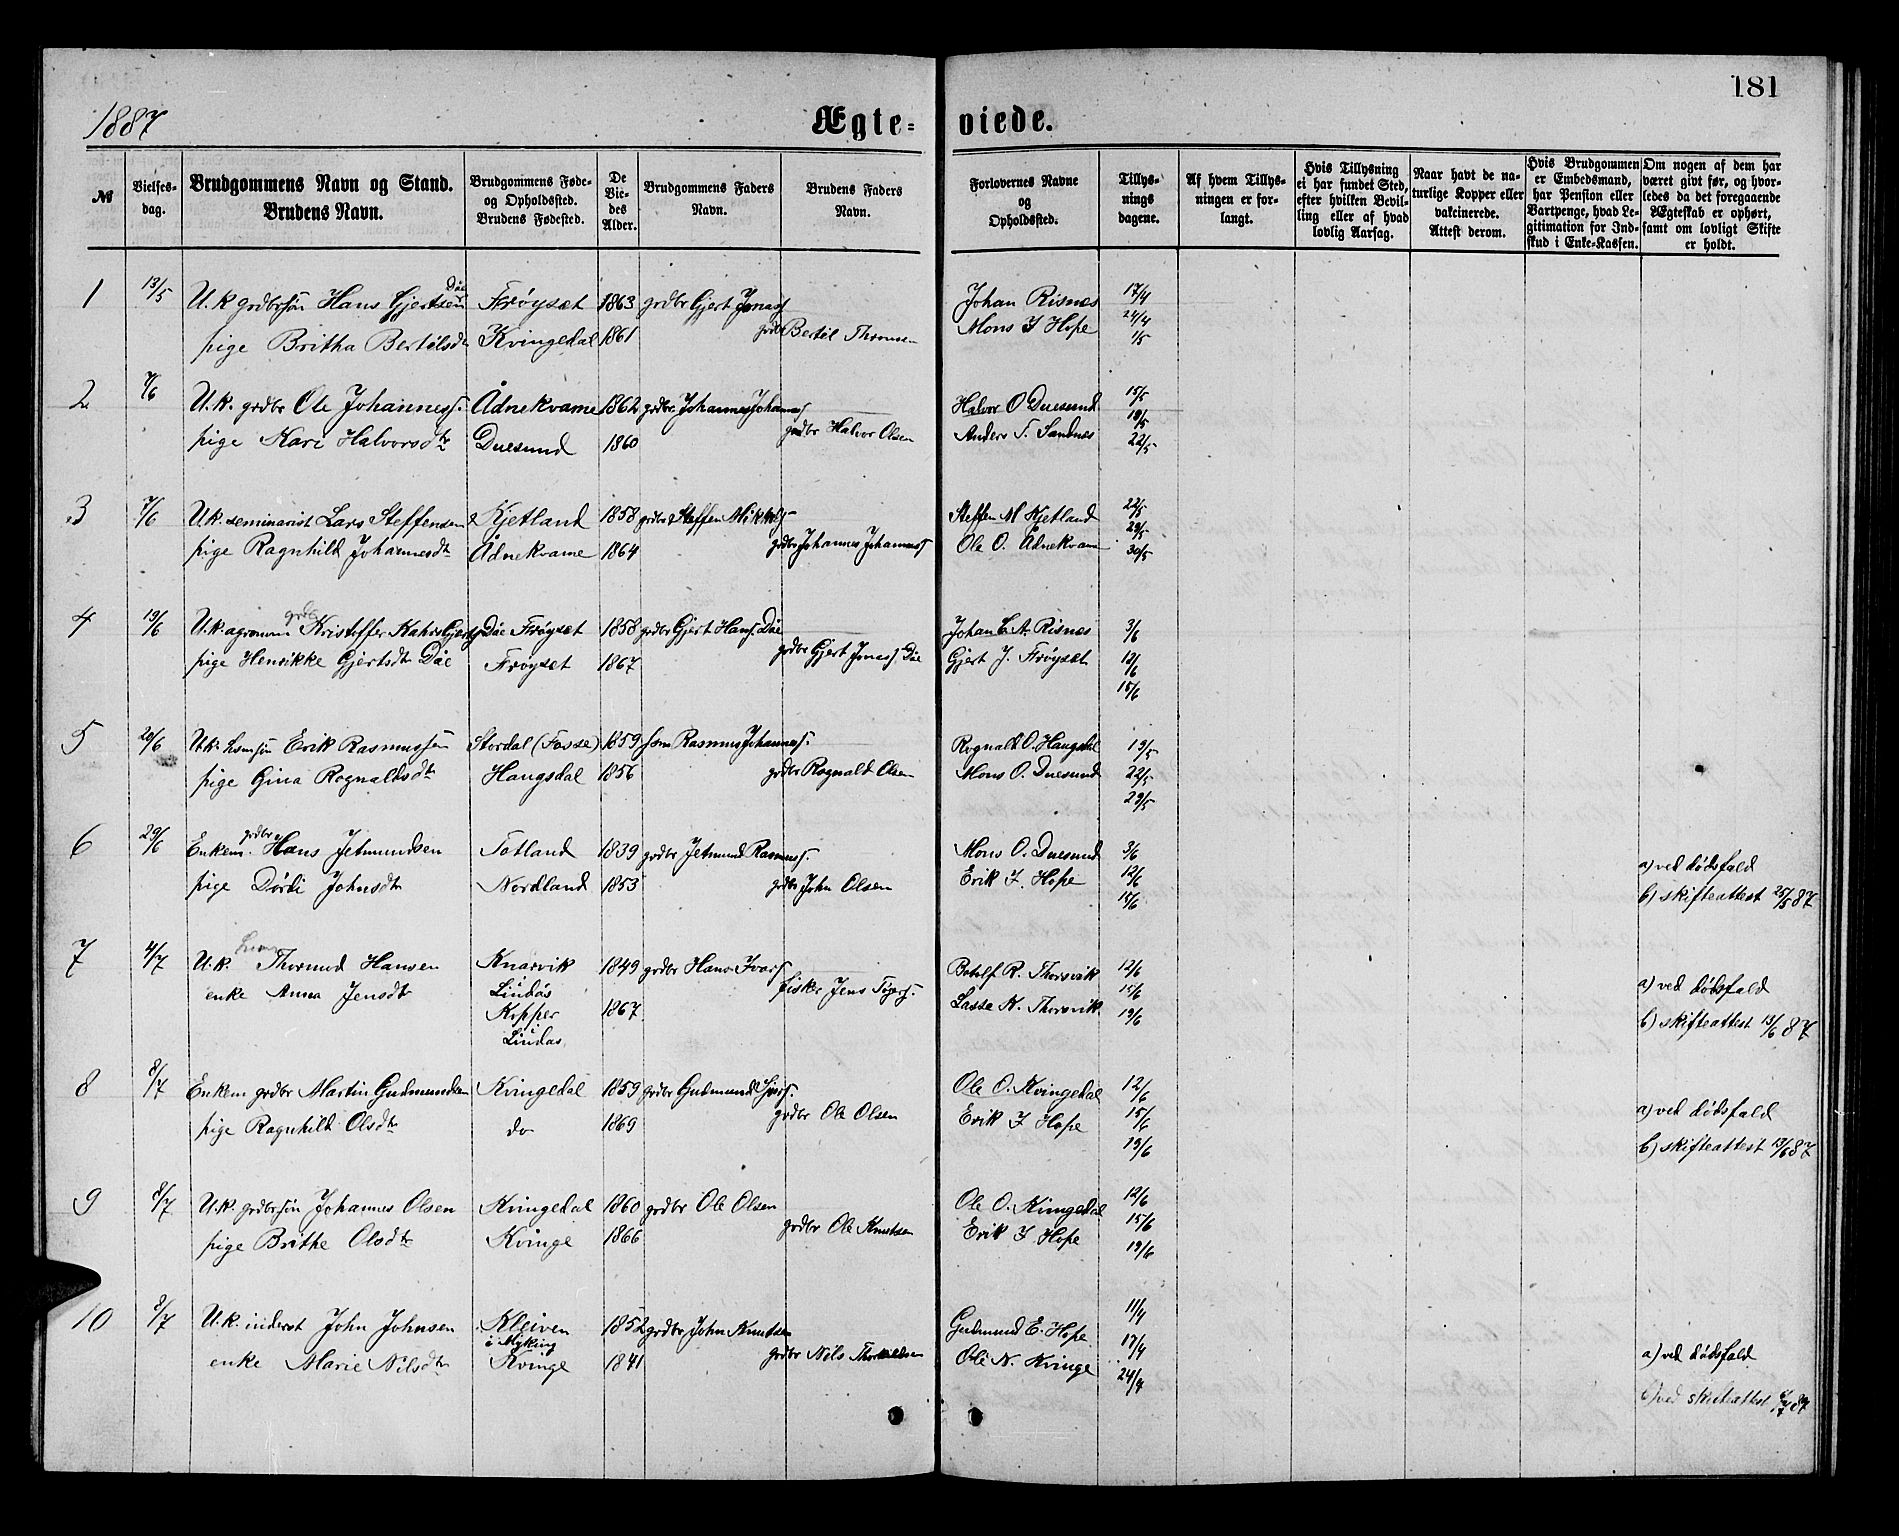 181
1887
Ægte-viede.
№
Vielses-dag.
Brudgommens Navn og Stand.
Brudens Navn.
Brudgommens Føde- og Opholdssted.
Brudens Fødested.
De Viedes Alder.
Brudgommens Faders Navn.
Brudens Faders Navn.
Forlovernes Navne og Opholdssted.
Tillysnings dagene.
Af hvem Tillysningen er forlangt.
Hvis Tillysning ei har fundet Sted, efter hvilken Bevilling eller af hvad lovlig Aarsag.
Naar havt de naturlige Kopper eller vakcinerede. Attest derom.
Hvis Brudgommen er Embedsmand, har Pension eller Vartpenge, hvad Legitimation for Indskud i Enke-Kassen.
Om nogen af dem har været givt før, og hvorledes da det foregaaende Ægteskab er ophørt, samt om lovligt Skifte er holdt.
1 13/5 U.k grdbrsøn Hans Gjertsen Døe Frøyset 1863 grdbr Gjert Jonasf Johan Risnes 17/4
pige Britha Bertilsdtr Kvingedal 1861 grdbr Bertil Thomsen Mons I Hope 24/4
1/5
2 7/6 U.k. grdbr Ole Johannesf. Ådnekvame 1862 grdbr Johannes Johannesf Halvor O Duesund 15/5
pige Kari Halvorsdtr Duesund 1860 grdbr Halvor Olsen Anders T. Sandnes 19/5
22/5
3 7/6 U.k. seminarist Lars Steffensen Kjetland 1858 grdbr Steffen Mikkelf Steffen M Kjetland 22/5
pige Ragnhild Johannesdtr Ådnekvame 1864 grdbr Johannes Johannesf Ole O. Ådnekvam 29/5
30/5
4 19/6 U.k. agronom grdbr Kristoffer Kahrs Gjertsf Døe Frøyset 1858 grdbr Gjert Hansf. Døe Johan C. A. Risnes 3/6
pige Henrikke Gjertsdtr Døe Frøyset 1867 grdbr Gjert Jonasf. Døe Gjert J. Frøyset 12/6
15/6
5 20/6 U.k. Lemsøn Erik Rasmussen Stordal (Fosse) 1859 Lem Rasmus Johannesf. Rognald O. Haugsdal 19/5
pige Gina Rognaldsdtr Haugsdal 1856 grdbr Rognald Olsen Mons O. Duesund 22/5
29/5
6 29/6 Enkem. grdbr Hans Jetmundsen Totland 1839 grdbr Jetmund Rasmusf. Mons O. Duesund 3/6
pige Dordi Johnsdtr Nordland 1853 grdbr John Olsen Erik I. Hope 12/6 a) ved dødsfald
15/6 b) skifteattest 25/5 87
7 4/7 U.k. Thormod Hansen Knarvik 1849 grdbr Hans Ivarf Botolf R. Thorsvik 12/6
enke Anna Jensdtr Lindås fisker Jens 15/6 a) ved dødsfald
Kopper 1867 Lasse K. Thorsvik 19/6 b) skifteattest 13/6 87
Lindås
8 8/7 Enkem grdbr Martin Gudmundsen Kvingedal 1859 grdbr Gudmund Ole O. Kvingedal 12/6
pige Ragnhild Olsdtr do 1869 grdbr Ole Olsen Erik I Hope 15/6 a) ved dødsfald
19/6 b) skifteattest 13/6 87
9 8/7 U.k. grdbrsøn Johannes Olsen Kvingedal 1860 grdbr Ole Olsen Ole O. Kvingedal 12/6
pige Brithe Olsdtr Kvinge 1866 grdbr Ole Knutsen Erik I Hope 15/6
19/6
10 8/7 U.k. inderst John Johnsen Kleiven 1852 grdbr John Knutsen Gudmund E. Hope 11/4
i Myking 17/4
enke Marie Nilsdtr Kvinge 1841 grdbr Nils Thorkildsen Ole N. Kvinge 24/4 a) ved dødsfald
b) ved skifteattest 87